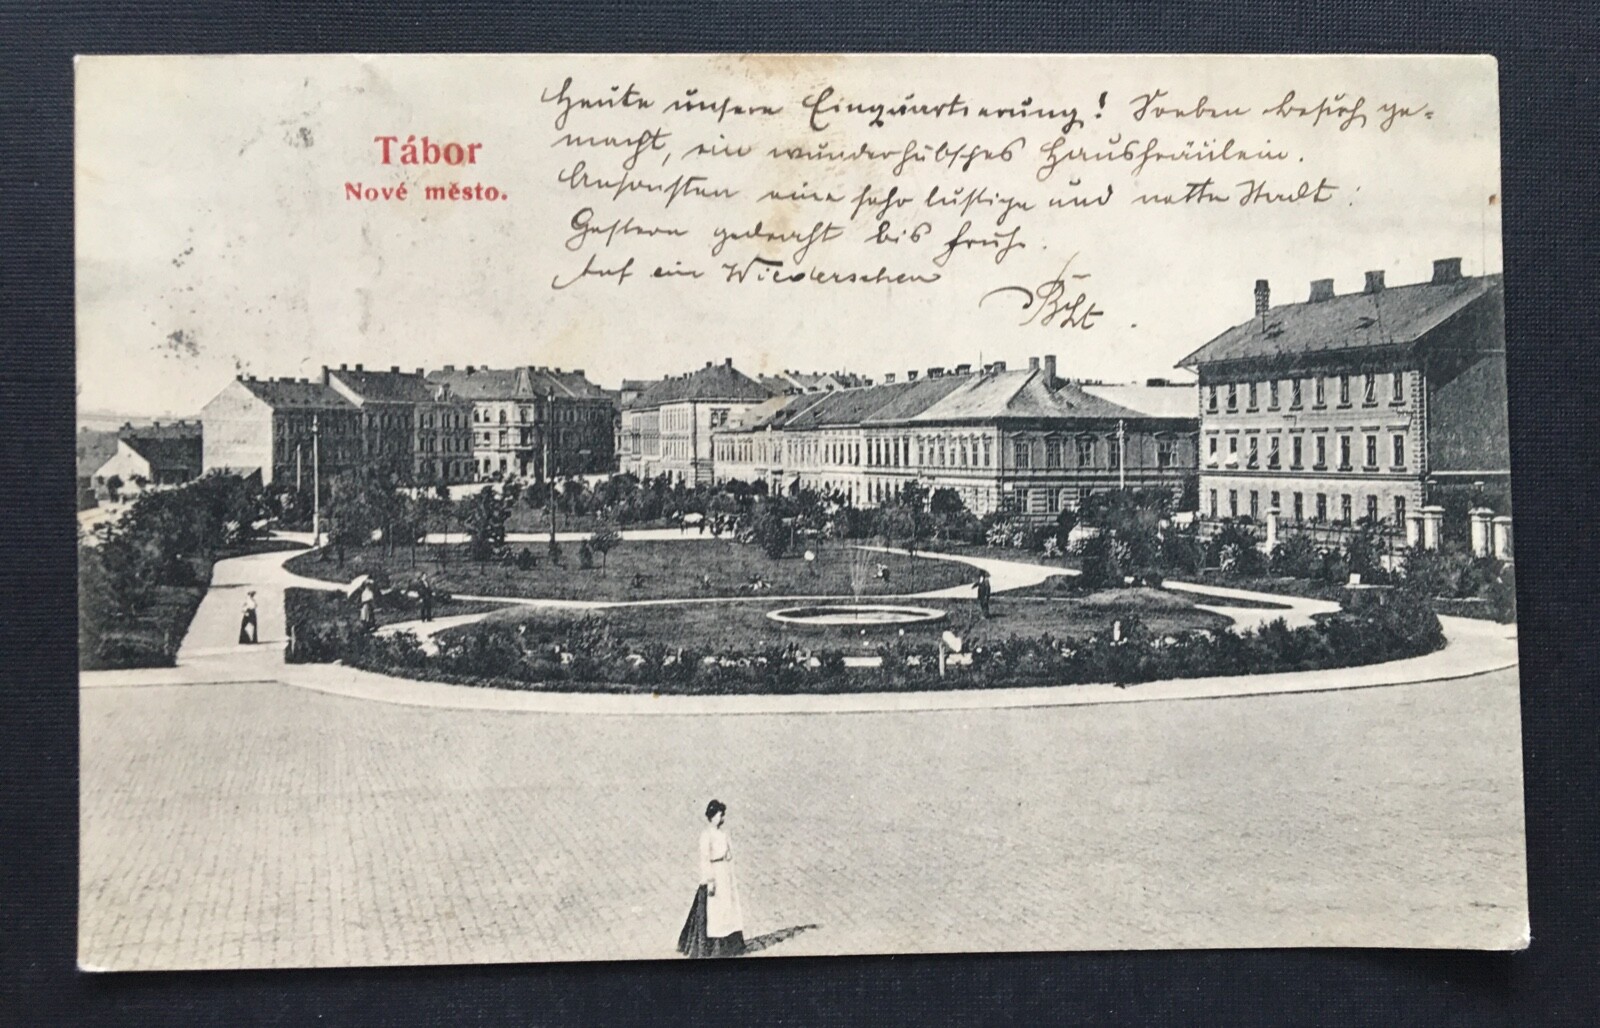 Tábor
Nové město.
Heute unsere Einquartierung! Soeben Besuch ge-
macht, ein wunderhübsches Hausfräulein.
Ansonsten eine sehr lustige und nette Stadt!
Gestern gedreht bis früh.
Auf ein Wiedersehen